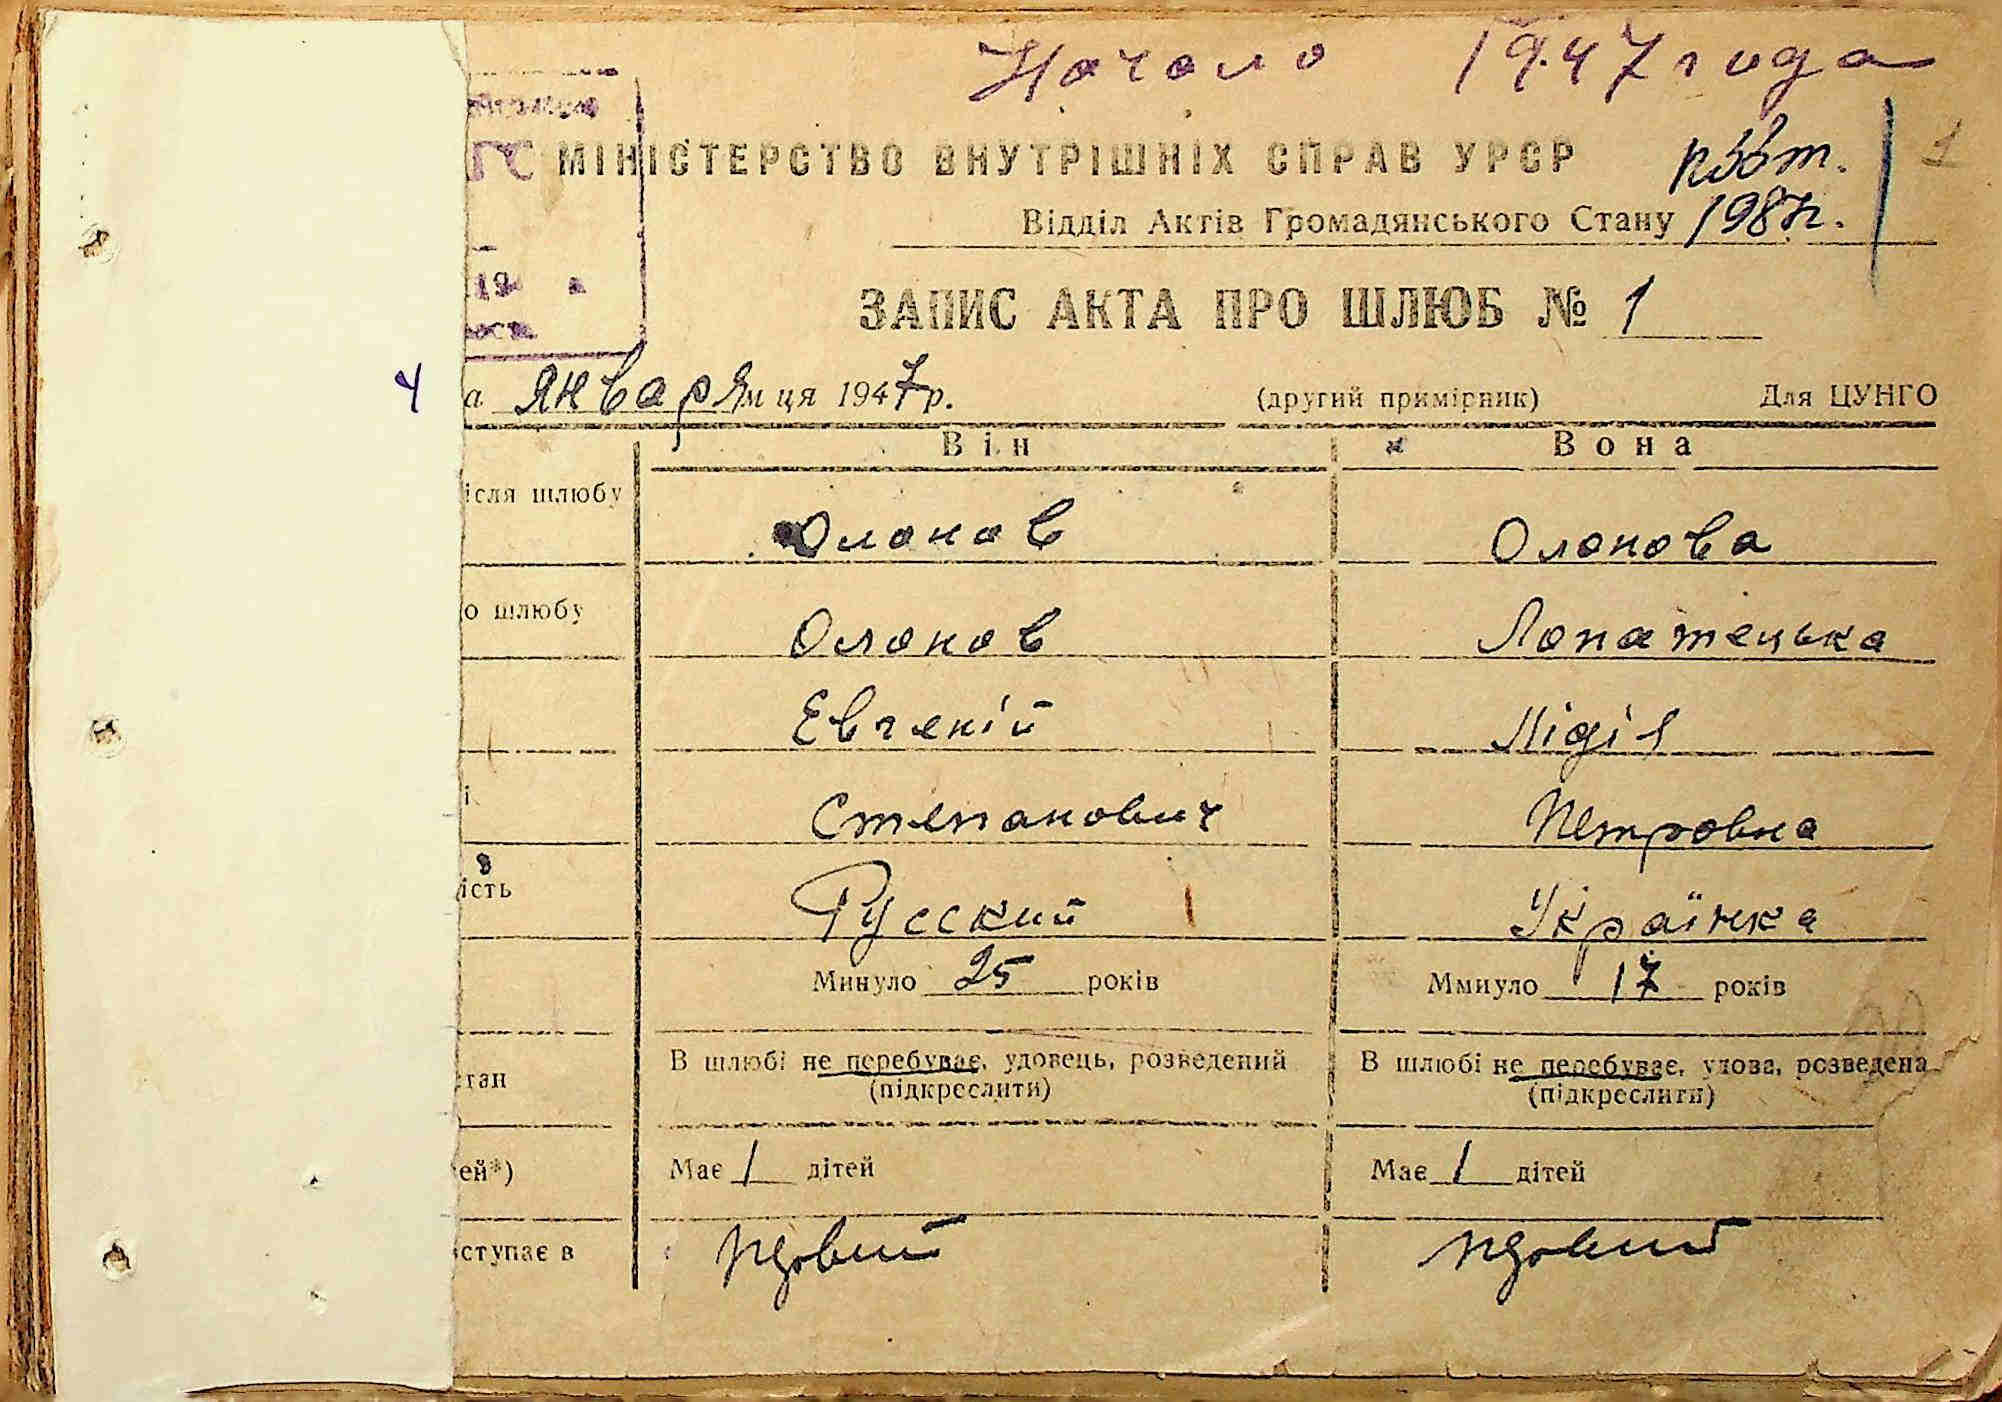 Начало 1947 года
1
ГС МІНІСТЕРСТВО ВНУТРІШНІХ СПРАВ УРСР
Відділ Актів Громадянського Стану 1987г.
19
ЗАПИС АКТА ПРО ШЛЮБ № 1
4
а Января м ця 1947 р. (другий примірник) Для ЦУНГО
Він Вона
ісля шлюбу Олонов Олонова
о шлюбу Олонов Лопатецька
Евгеній Лідія
і Степанович Петровна
ість Русский Українка
Минуло 25 років Ммнуло 17 років
тан В шлюбі не перебуває, удовець, розведений В шлюбі не перебуває, удова, розведена
(підкреслити) (підкреслити)
ей*) Має 1 дітей Має 1 дітей
ступає в